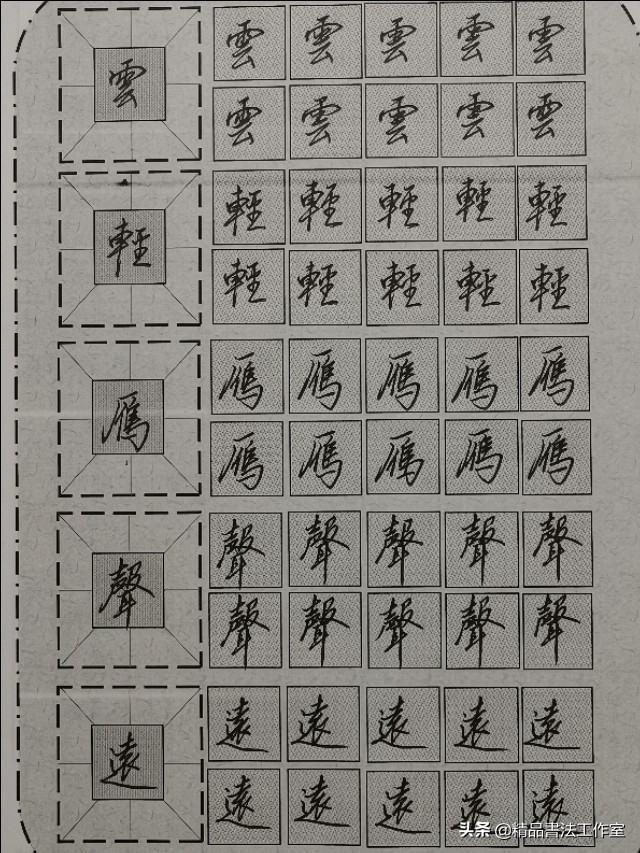 雲
雲 雲 雲 雲 雲
雲 雲 雲 雲 雲
輕
輕 輕 輕 輕 輕
輕 輕 輕 輕 輕
鴈
鴈 鴈 鴈 鴈 鴈
鴈 鴈 鴈 鴈 鴈
聲
聲 聲 聲 聲 聲
聲 聲 聲 聲 聲
遠
遠 遠 遠 遠 遠
遠 遠 遠 遠 遠
头条 @精品書法工作室